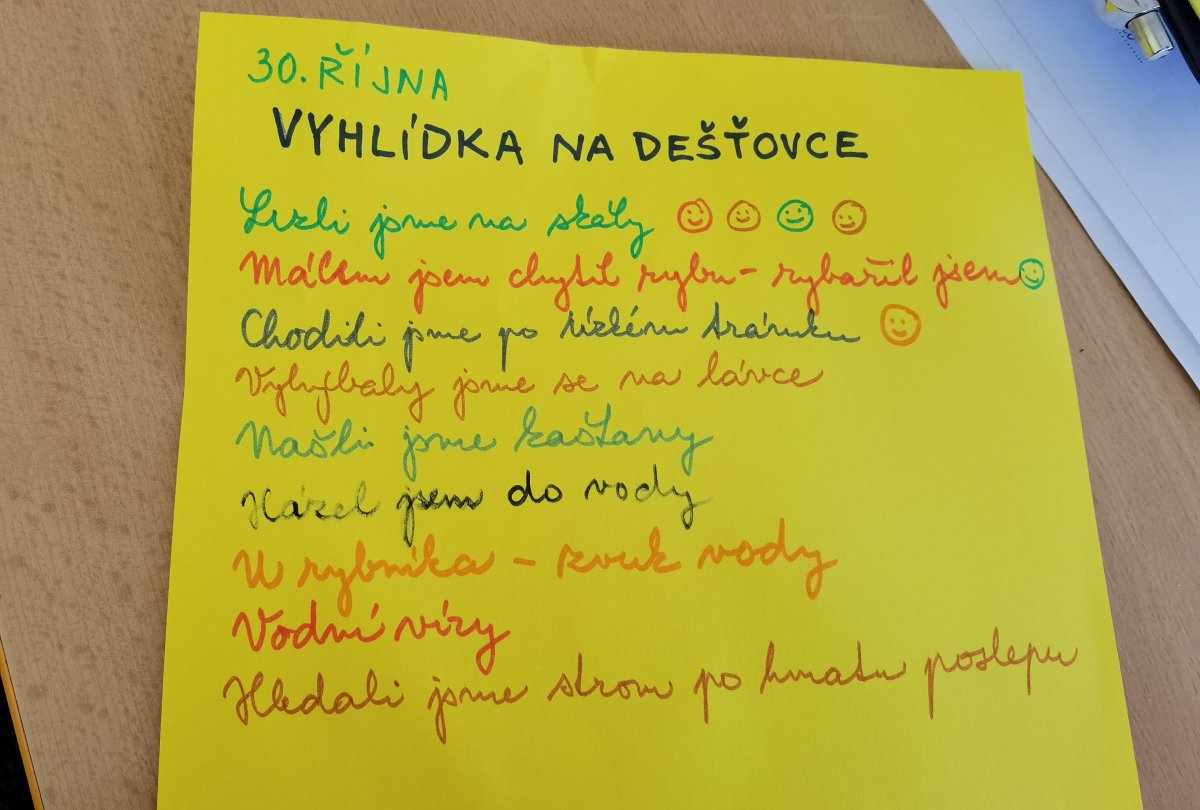 30. ŘÍJNA
VYHLÍDKA NA DEŠŤOVCE
Lezli jsme na skály
Málem jsem chytil rybu - rybařil jsem
Chodili jsme po trávníku
jsme se na lávce
Našli jsme kaštany
Házel jsem do vody
U rybníka - zvuk vody
Vodní víry
Hledali jsme strom po hmatu poslepu